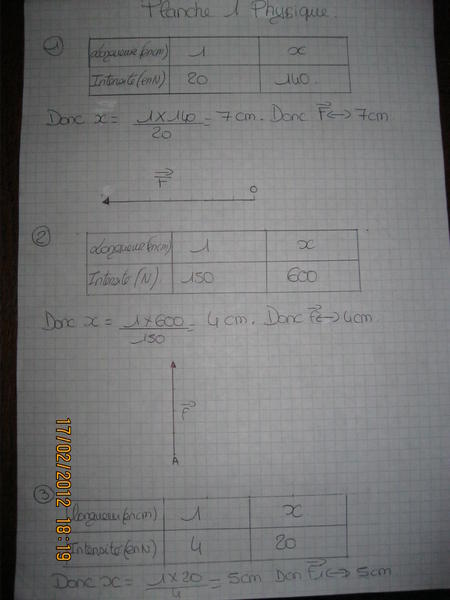 Planche 1 Physique.
1
Longueur (en cm) 1 x
Intensité (en N) 20 140
Donc x = 1 x 140 / 20 = 7 cm. Donc F ↔ 7 cm
F O
2
Longueur (en cm) 1 x
Intensité (N) 150 600
Donc x = 1 x 600 / 150 = 4 cm. Donc F ↔ 4 cm
F
A
3
Longueur (en cm) 1 x
Intensité (en N) 4 20
Donc x = 1 x 20 / 4 = 5 cm Don F1 ↔ 5 cm
17/02/2012 18:19